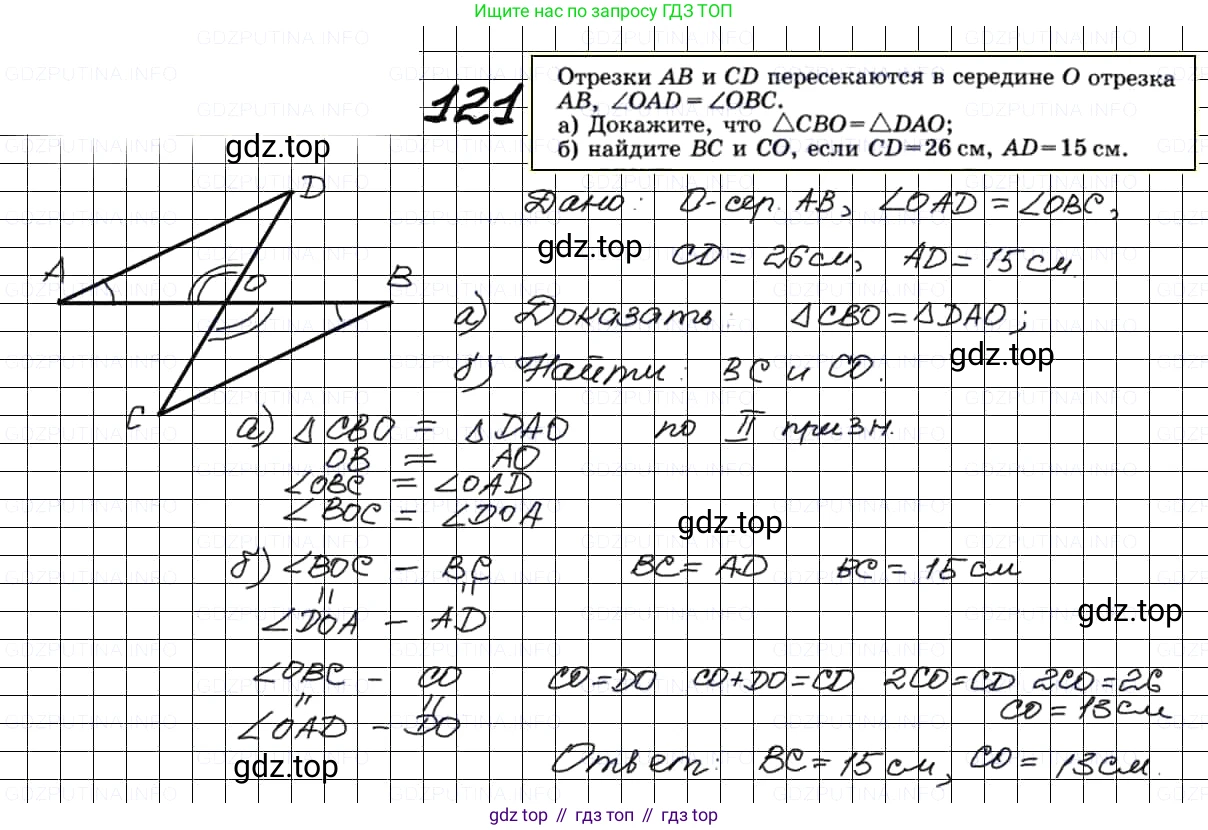 Ищите нас по запросу ГДЗ ТОП
121
Отрезки AB и CD пересекаются в середине O отрезка
AB, ∠OAD = ∠OBC.
а) Докажите, что △CBO = △DAO;
б) найдите BC и CO, если CD = 26 см, AD = 15 см.
gdz.top
D
Дано: O-сер. AB, ∠OAD = ∠OBC,
gdz.top
CD = 26 см, AD = 15 см.
A
O
B
а) Доказать: △CBO = △DAO;
gdz.top
б) Найти: BC и CO.
C
а) △CBO = △DAO по II призн.
OB = AO
∠OBC = ∠OAD
∠BOC = ∠DOA
gdz.top
б) ∠BOC – BC BC = AD BC = 15 см
= =
∠DOA – AD
gdz.top
∠OBC – CO CO = DO CO + DO = CD 2CO = CD 2CO = 26
= =
CO = 13 см
∠OAD – DO
gdz.top
Ответ: BC = 15 см, CO = 13 см.
gdz top // гдз топ // gdz.top